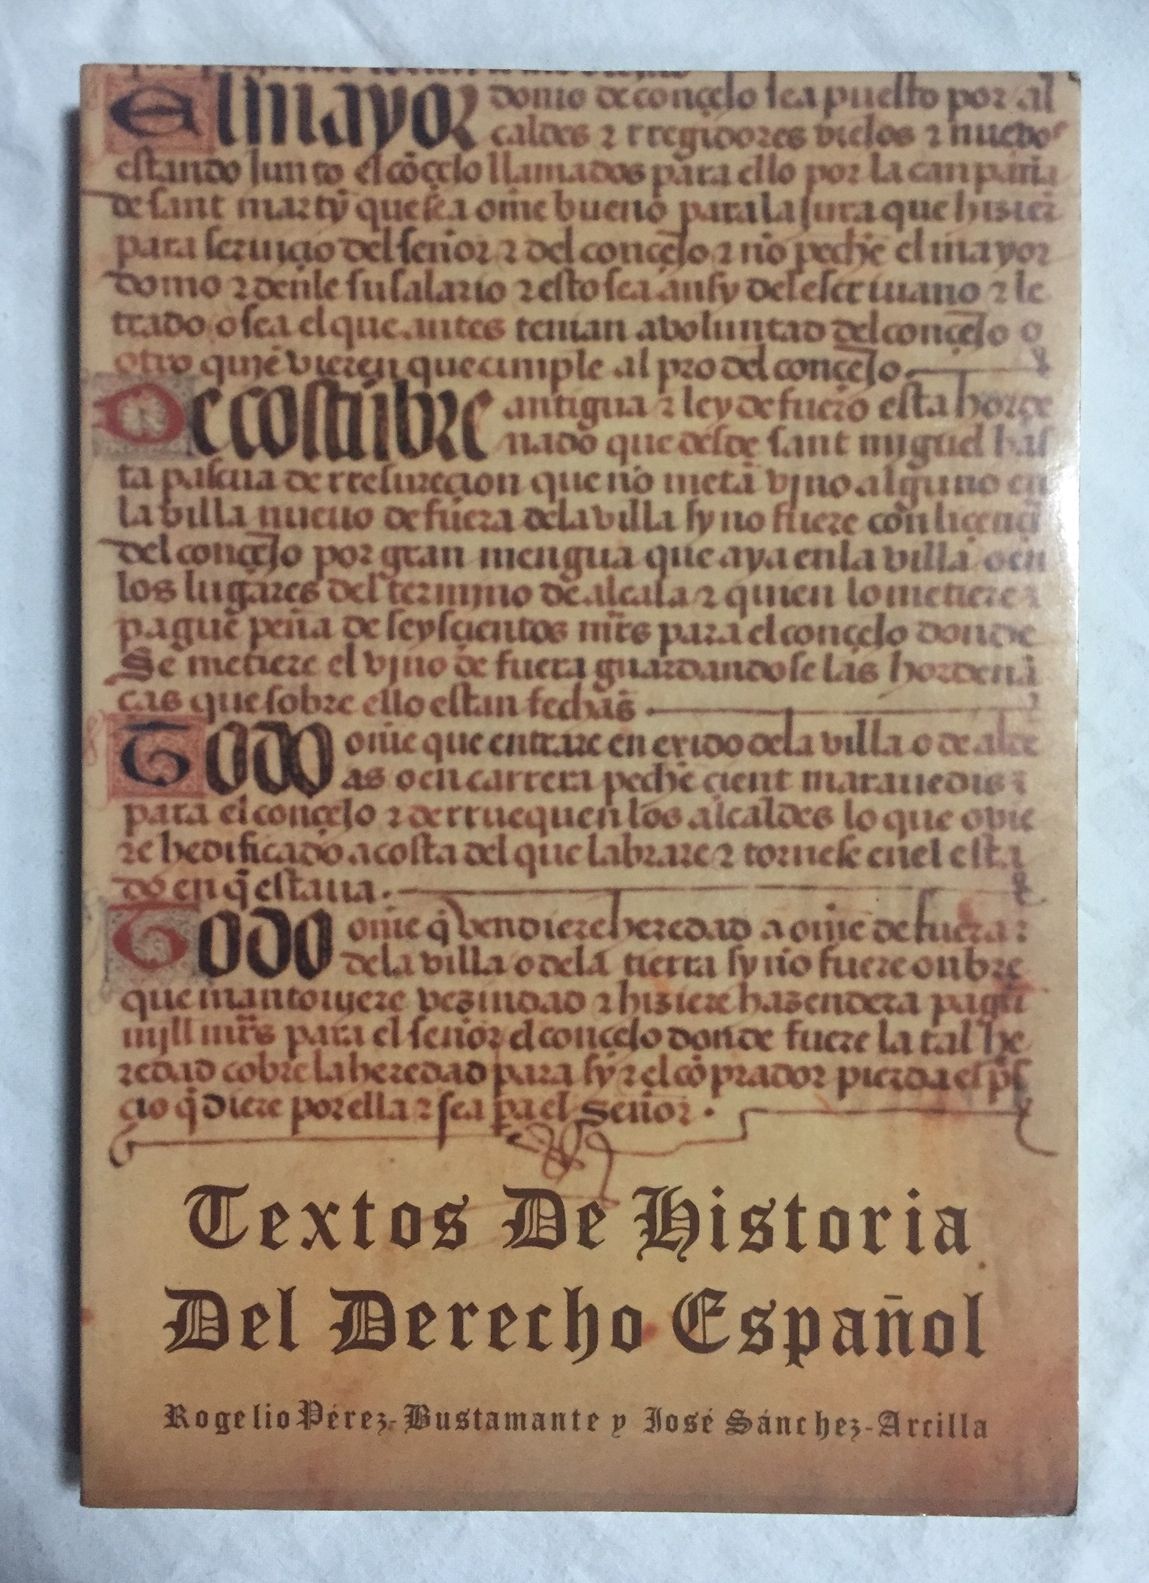 El mayor domo de conçeJo sea puesto por al
caldes ⁊ rregidores vieJos ⁊ nuebos
estando Junto el cõçeJo llamados para ello por la canpana
de sant martỹ que sea om̃e bueno para la Jura que hisier̃
para seruiçio del señor ⁊ del conçeJo ⁊ nõ peche el mayor
domo ⁊ denle su salario ⁊ esto sea ansy del escriuano ⁊ le
trado o sea el que antes tenian a voluntad del conçeJo o
otro quiẽ vieren que cumple al pro del conçeJo
De costũbre antigua ⁊ ley de fuero esta horde
nado que desde sant miguel has
ta pascua de rresureçion que nõ metã vjno alguno en
la villa nueuo de fuera de la villa sy no fuere con liçençia
del conçeJo por gran mengua que aya en la villa o en
los lugares del termjno de alcala ⁊ quien lo metiere
pague peña de seysçientos mr̃s para el conçeJo donde
Se metiere el vjno de fuera guardandose las hordenã
cas que sobre ello estan fechas
Todo om̃e que entrare en exido de la villa o de alde
as o en carrera peche çient marauedis
para el conçeJo ⁊ derruequen los alcaldes lo que ovie
re hedificado a costa del que labrare ⁊ tornese en el esta
do en q̃ estaua.
Todo om̃e q̃ bendiere heredad a om̃e de fuera
de la villa o de la tierra sy nõ fuere onbre
que mantoujere vezindad ⁊ hiziere hazendera pague
mjll mr̃s para el señor el conçeJo donde fuere la tal he
redad cobre la heredad para sy ⁊ el cõprador pierda el p̃s
çio q̃ diere por ella ⁊ sea pa el Señor.
Textos De Historia
Del Derecho Español
Rogelio Pérez-Bustamante y José Sánchez-Arcilla